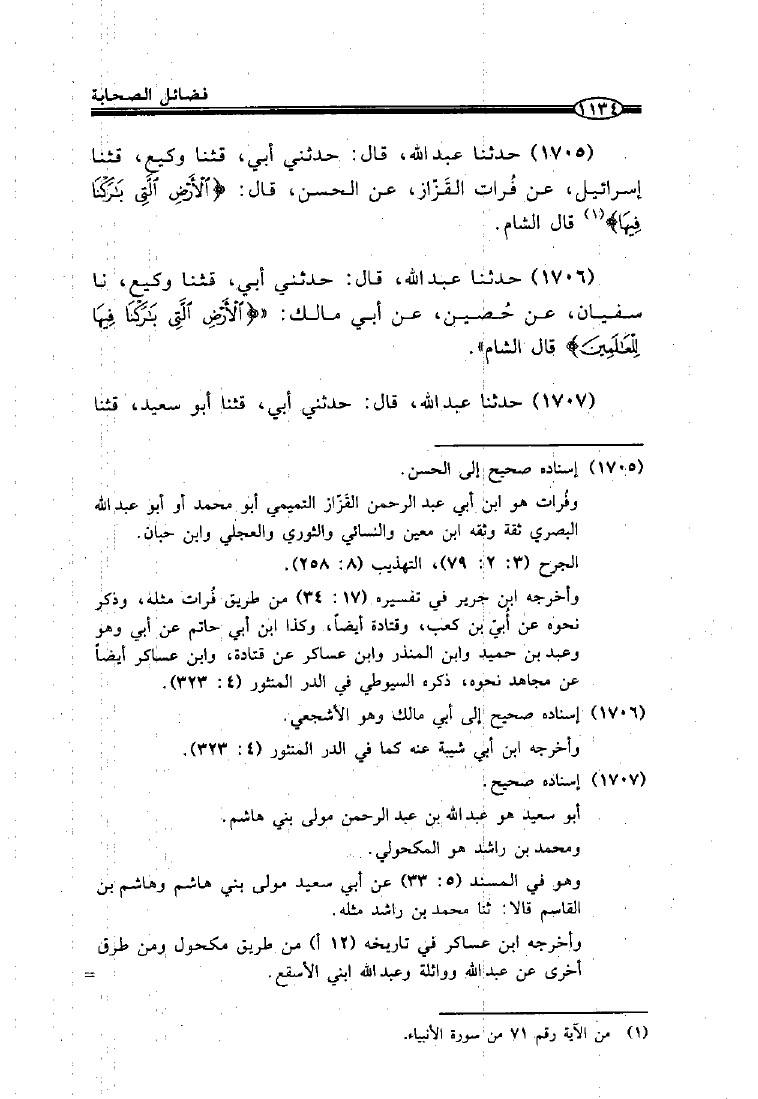 فضائل الصحابة
١١٣٤
(١٧٠٥) حدثنا عبدالله، قال: حدثني أبي، قثنا وكيع، قثنا
إسرائيل، عن فُرات القَزّاز، عن الحسن، قال: ﴿ٱلْأَرْضِ ٱلَّتِى بَٰرَكْنَا
فِيهَا﴾(١) قال الشام.
(١٧٠٦) حدثنا عبدالله، قال: حدثني أبي، قثنا وكيع، نا
سفيان، عن حُصين، عن أبي مالك: «﴿ٱلْأَرْضِ ٱلَّتِى بَٰرَكْنَا فِيهَا
لِلْعَٰلَمِينَ﴾ قال الشام».
(١٧٠٧) حدثنا عبدالله، قال: حدثني أبي، قثنا أبو سعيد، قثنا
(١٧٠٥) إسناده صحيح إلى الحسن.
وفُرات هو ابن أبي عبد الرحمن القَزّاز التميمي أبو محمد أو أبو عبدالله
البصري ثقة وثقه ابن معين والنسائي والثوري والعجلي وابن حبان.
الجرح (٣: ٢: ٧٩)، التهذيب (٨: ٢٥٨).
وأخرجه ابن جرير في تفسيره (١٧: ٣٤) من طريق فُرات مثله، وذكر
نحوه عن أُبيّ بن كعب، وقتادة أيضاً، وكذا ابن أبي حاتم عن أبي وهو
وعبد بن حميد وابن المنذر وابن عساكر عن قتادة، وابن عساكر أيضاً
عن مجاهد نحوه، ذكره السيوطي في الدر المنثور (٤: ٣٢٣).
(١٧٠٦) إسناده صحيح إلى أبي مالك وهو الأشجعي.
وأخرجه ابن أبي شيبة عنه كما في الدر المنثور (٤: ٣٢٣).
(١٧٠٧) إسناده صحيح.
أبو سعيد هو عبدالله بن عبد الرحمن مولى بني هاشم.
ومحمد بن راشد هو المكحولي.
وهو في المسند (٥: ٣٣) عن أبي سعيد مولى بني هاشم وهاشم بن
القاسم قالا: ثنا محمد بن راشد مثله.
وأخرجه ابن عساكر في تاريخه (١٢ أ) من طريق مكحول ومن طرق
أخرى عن عبدالله وواثلة وعبدالله ابني الأسقع.
=
(١) من الآية رقم ٧١ من سورة الأنبياء.